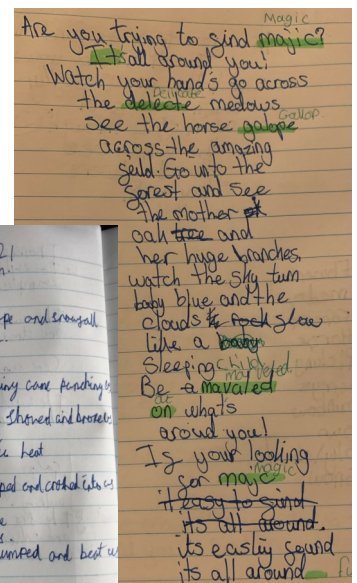 Magic
Are you trying to find majic?
Its all around you!
Watch your hand's go across
Delicate
the delecte medows
Gallop
see the horse galope
across the amazing
feild. Go into the
forest and see
the mother
oak tree and
her huge branches,
watch the sky turn
baby blue and the
clouds flow
like a baby
Sleeping child
marveled
Be a mavaled
at
on whats
around you!
If your looking
magic
for majic
it easy to find
its all around.
its easliy found
its all around
21
pe and snowfall
iny cane pendting
showed and broke
heat
ped and crothed into us
umped and beat u